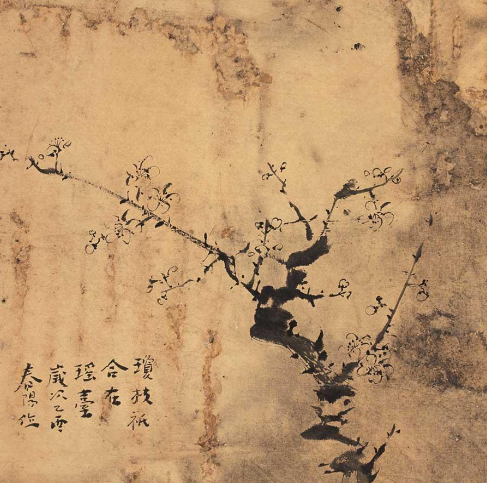 瓊枝祇
合在
瑤臺
歲次乙酉
春陽作